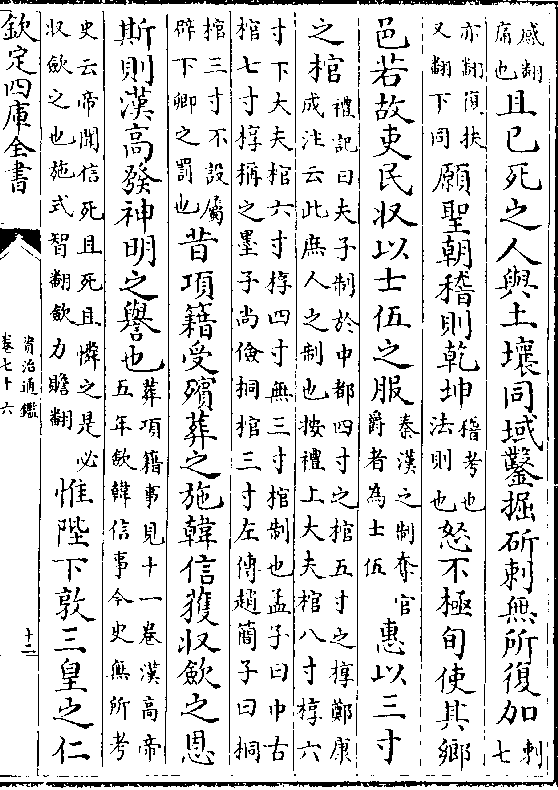 感翻痛也且已死之人與土壤同域鑿掘斫刺無所復加刺七
亦翻復扶又翻下同願聖朝稽則乾坤稽考也法則也怒不極旬使其鄉
邑若故吏民収以士伍之服秦漢之制奪官爵者為士伍惠以三寸
之棺禮記曰夫子制於中都四寸之棺五寸之椁鄭康成注云此庶人之制也按禮上大夫棺八寸椁六
寸下大夫棺六寸椁四寸無三寸棺制也孟子曰中古棺七寸椁稱之墨子尚儉桐棺三寸左傳趙簡子曰桐
棺三寸不設屬辟下卿之罰也昔項籍受殯葬之施韓信獲収歛之恩
斯則漢高發神明之譽也葬項籍事見十一卷漢高帝五年歛韓信事今史無所考
史云帝聞信死且死且憐之是必収歛之也施式智翻歛力贍翻惟陛下敦三皇之仁
欽定四庫全書
資治通鑑
卷七十六
十二